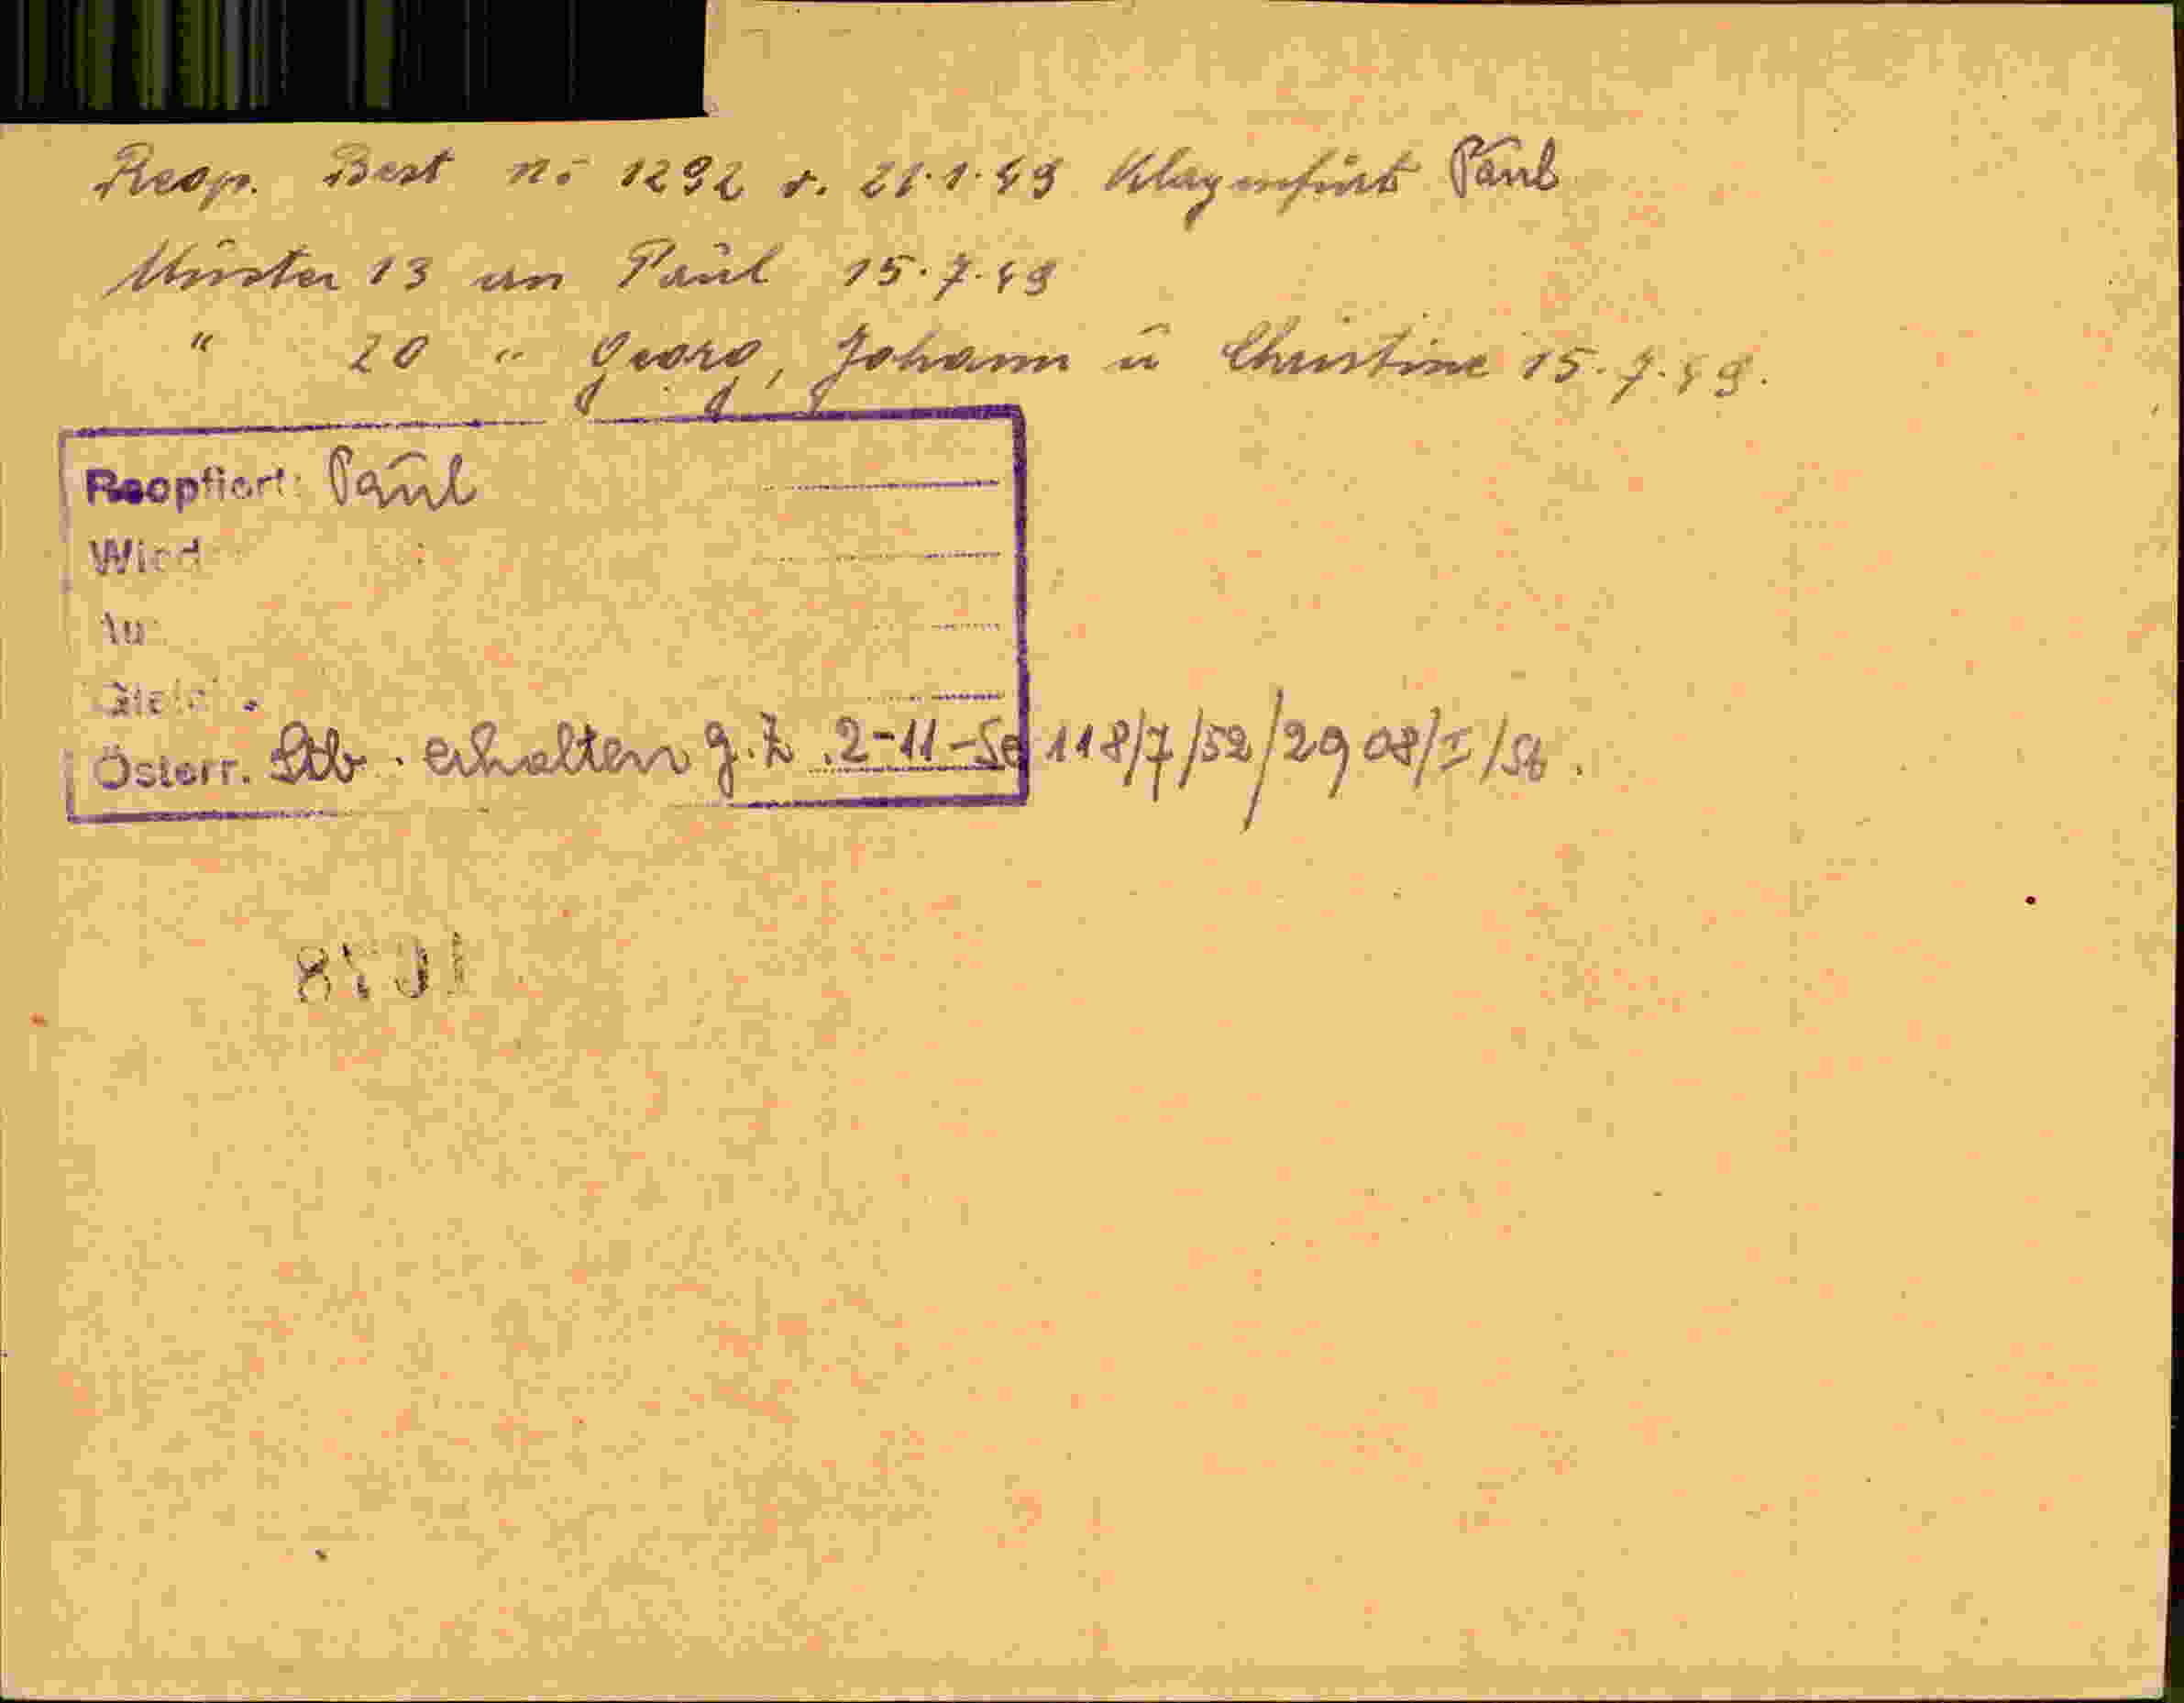 Reop. Best no 1292 v. 21.1.49 Klagenfurt Paul
Muster 13 an Paul 15.7.49
" 20 " Georg, Johann u Christine 15.7.49.
Reoptiert: Paul
Wird
In
Österr. Stb. erhalten g.Z. 2-11-Se 118/7/52/2908/I/Sb.